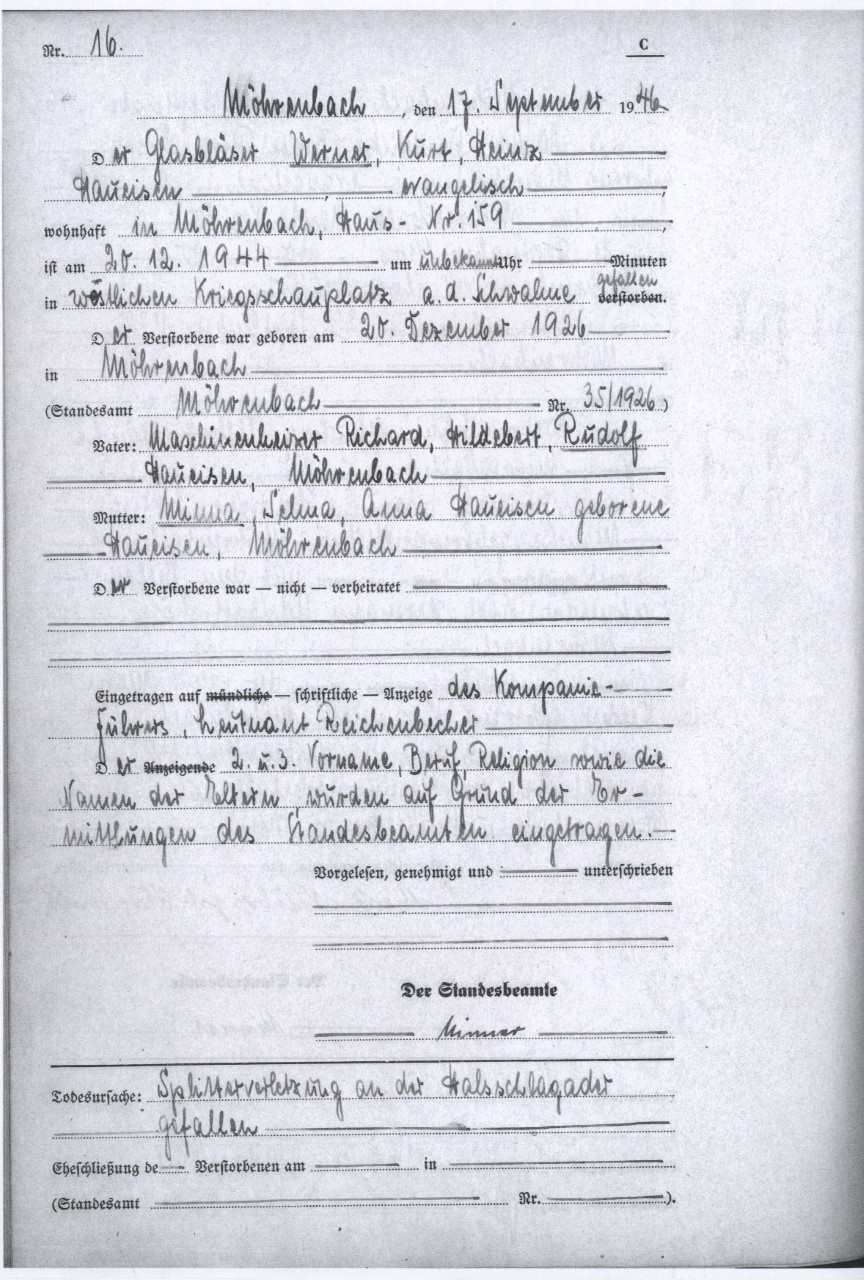 Nr. 16.
C
Möhrenbach, den 17. September 1946
Der Glasbläser Werner, Kurt, Heinz
Haueisen, evangelisch
wohnhaft in Möhrenbach, Haus-Nr. 159
ist am 20.12.1944 um unbekannt Uhr Minuten
gefallen
in westlichen Kriegsschauplatz a. d. Schwalme verstorben.
Der Verstorbene war geboren am 20. Dezember 1926
in Möhrenbach
(Standesamt Möhrenbach Nr. 35/1926)
Vater: Maschinenheizer Richard, Hildebert, Rudolf
Haueisen, Möhrenbach
Mutter: Minna, Selma, Anna Haueisen geborene
Haueisen, Möhrenbach
Der Verstorbene war — nicht — verheiratet
Eingetragen auf mündliche — schriftliche — Anzeige des Kompanie-
Führers, Leutnant Reichenbecher
Der Anzeigende 2. u. 3. Vorname, Beruf, Religion sowie die
Namen der Eltern, wurden auf Grund der Er-
mittlungen des Standesbeamten eingetragen.
Vorgelesen, genehmigt und unterschrieben
Der Standesbeamte
Todesursache: Splitterverletzung an der Halsschlagader
gefallen
Eheschließung de Verstorbenen am in
(Standesamt Nr. ).